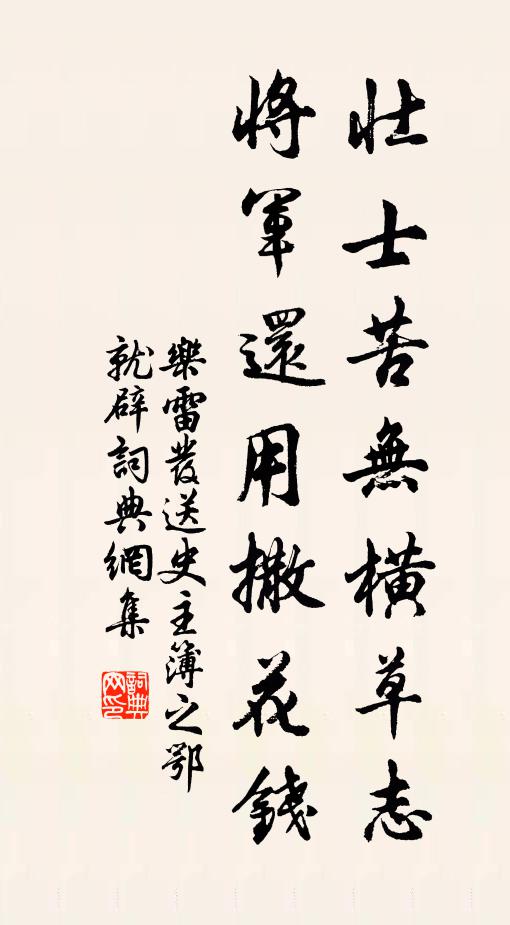 壯士苦無橫草志
將軍還用撒花錢
樂雷發送史主簿之鄂
就辟詞典網集
詞典網印